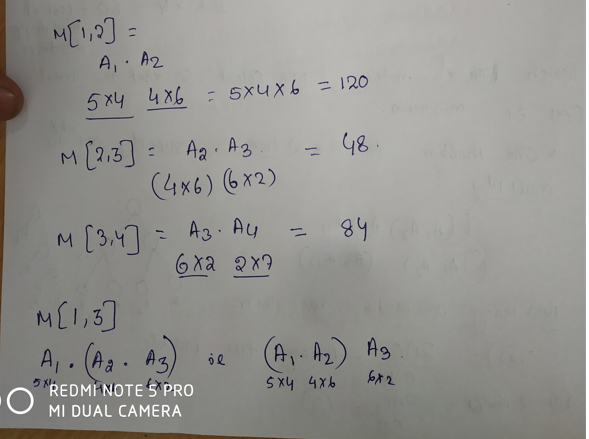 M[1,2] =
A1 · A2
5×4 4×6 = 5×4×6 = 120
M[2,3] = A2 · A3 = 48.
(4×6) (6×2)
M[3,4] = A3 · A4 = 84
6×2 2×7
M[1,3]
A1 · (A2 · A3) or (A1 · A2) A3.
5×4 5×4 4×6 6×2
REDMI NOTE 5 PRO
MI DUAL CAMERA